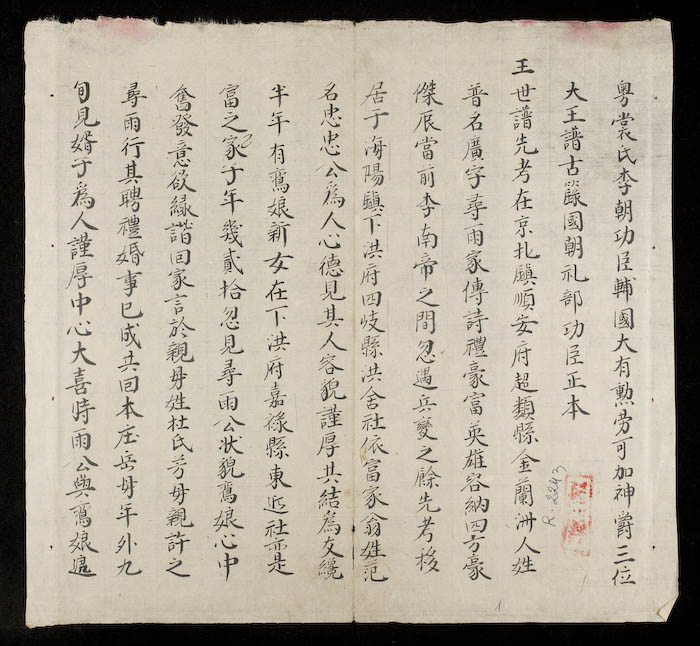 粵裳氏李朝功臣輔國大有勲劳可加神爵三位
大王譜古籙國朝礼部功臣正本
王世譜先考在京北鎮順安府超類縣金蘭洲人姓
普名廣字尋雨家傳詩禮豪富英雄容納四方豪
傑辰當前李南帝之間忽遇兵變之餘先考移
居于海陽鎮下洪府四岐縣洪舍社依富家翁姓范
名忠忠公為人心德見其人容貌謹厚共結為友纔
半年有鸞娘新女在下洪府嘉祿縣東近社亦是
富之家子年幾貳拾忽見尋雨公狀貌鸞娘心中
奮發意欲緣諧回家言於親母姓杜氏芳母親許之
尋雨行其聘禮婚事已成共回本庄岳母年外九
旬見婿子為人謹厚中心大喜時雨公與鸞娘
R.2243
1